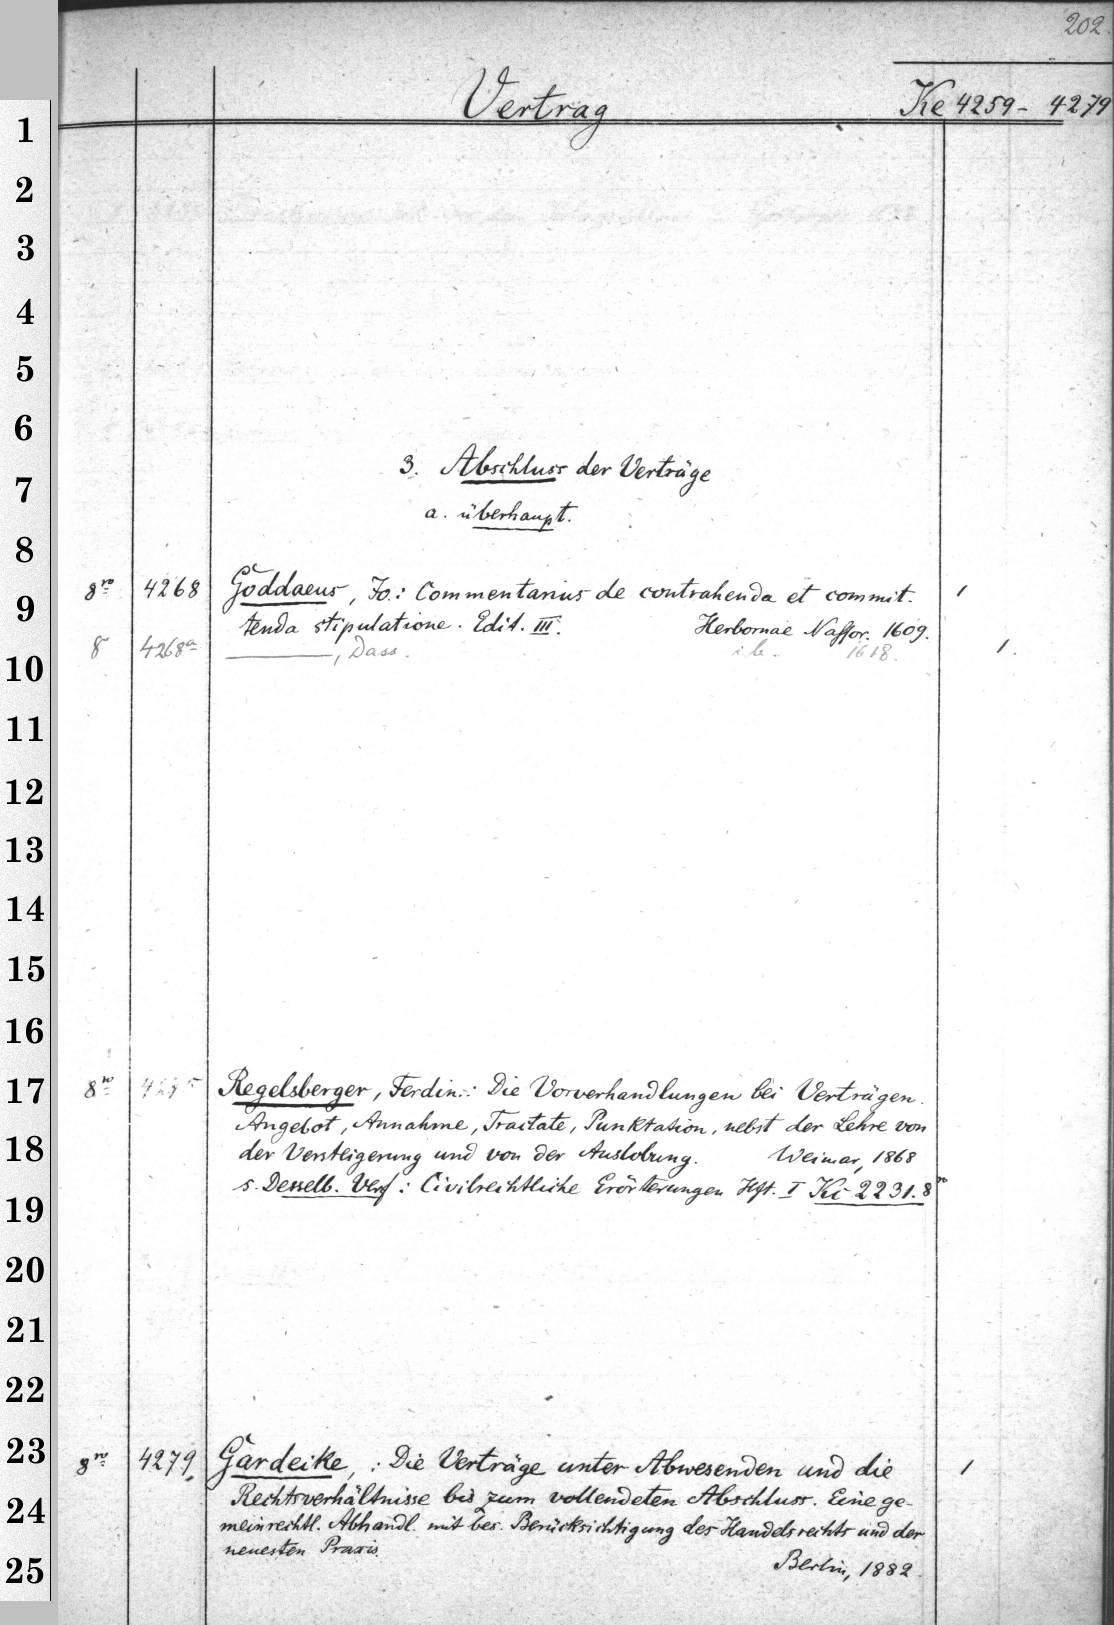 202.
Vertrag
Ke 4259 - 4279
1
2
3
4
5
6
7
8
9
10
11
12
13
14
15
16
17
18
19
20
21
22
23
24
25
3. Abschluss der Verträge
a. überhaupt.
8vo 4268 Goddaeus, Jo.: Commentarius de contrahenda et commit- 1
tenda stipulatione. Edit. III. Herbornae Nassov. 1609.
8 4268a ———, Dass. ib. 1618. 1.
8vo 4275 Regelsberger, Ferdin.: Die Vorverhandlungen bei Verträgen.
Angebot, Annahme, Tractate, Punktation, nebst der Lehre von
der Versteigerung und von der Auslobung. Weimar, 1868
s. Desselb. Verf: Civilrechtliche Erörterungen Hft. I Ke 2231. 8vo
8vo 4279. Gardeike, : Die Verträge unter Abwesenden und die 1
Rechtsverhältnisse bis zum vollendeten Abschluss. Eine ge-
meinrechtl. Abhandl. mit bes. Berücksichtigung des Handelsrechts und der
neuesten Praxis.
Berlin, 1882.